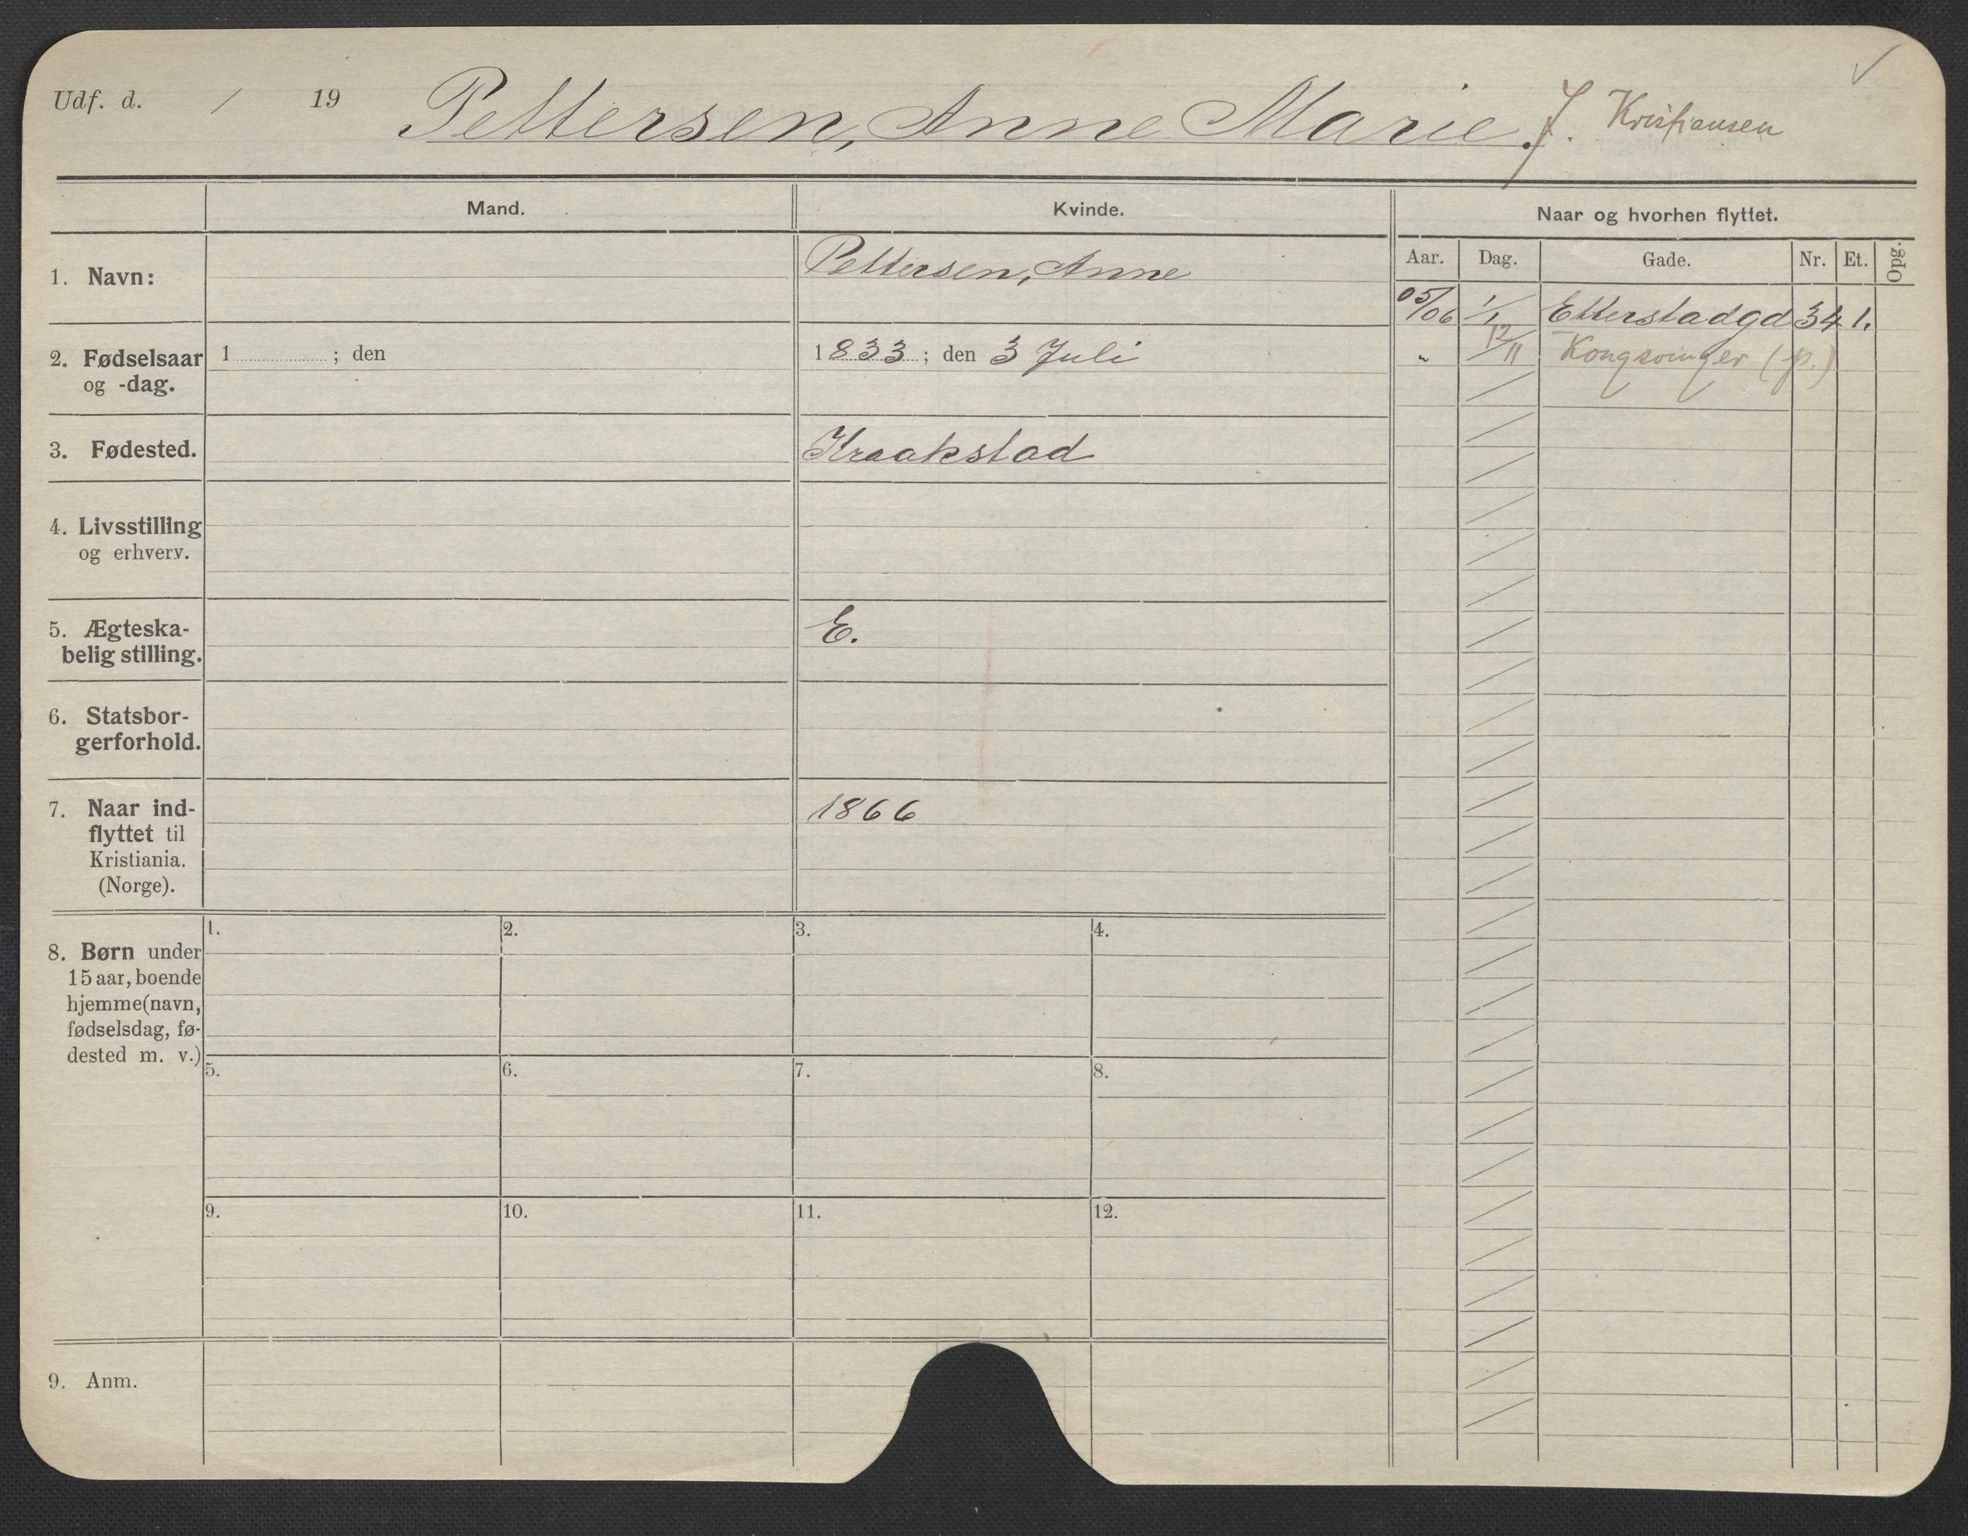 Udf. d. / 19 Pettersen, Anne Marie. f. Kristiansen
Mand. Kvinde. Naar og hvorhen flyttet.
Aar. Dag. Gade. Nr. Et. Opg.
1. Navn: Pettersen, Anne
05/06 1/1 Etterstadgd 34 1.
2. Fødselsaar og -dag. 1 ; den 1833 ; den 3 Juli
„ 12/11 Kongsvinger (p.)
3. Fødested. Kraakstad
4. Livsstilling
og erhverv.
5. Ægteska-
belig stilling. E.
6. Statsbor-
gerforhold.
7. Naar ind-
flyttet til
Kristiania.
(Norge). 1866
8. Børn under
15 aar, boende
hjemme (navn,
fødselsdag, fø-
dested m. v.)
1. 2. 3. 4.
5. 6. 7. 8.
9. 10. 11. 12.
9. Anm.